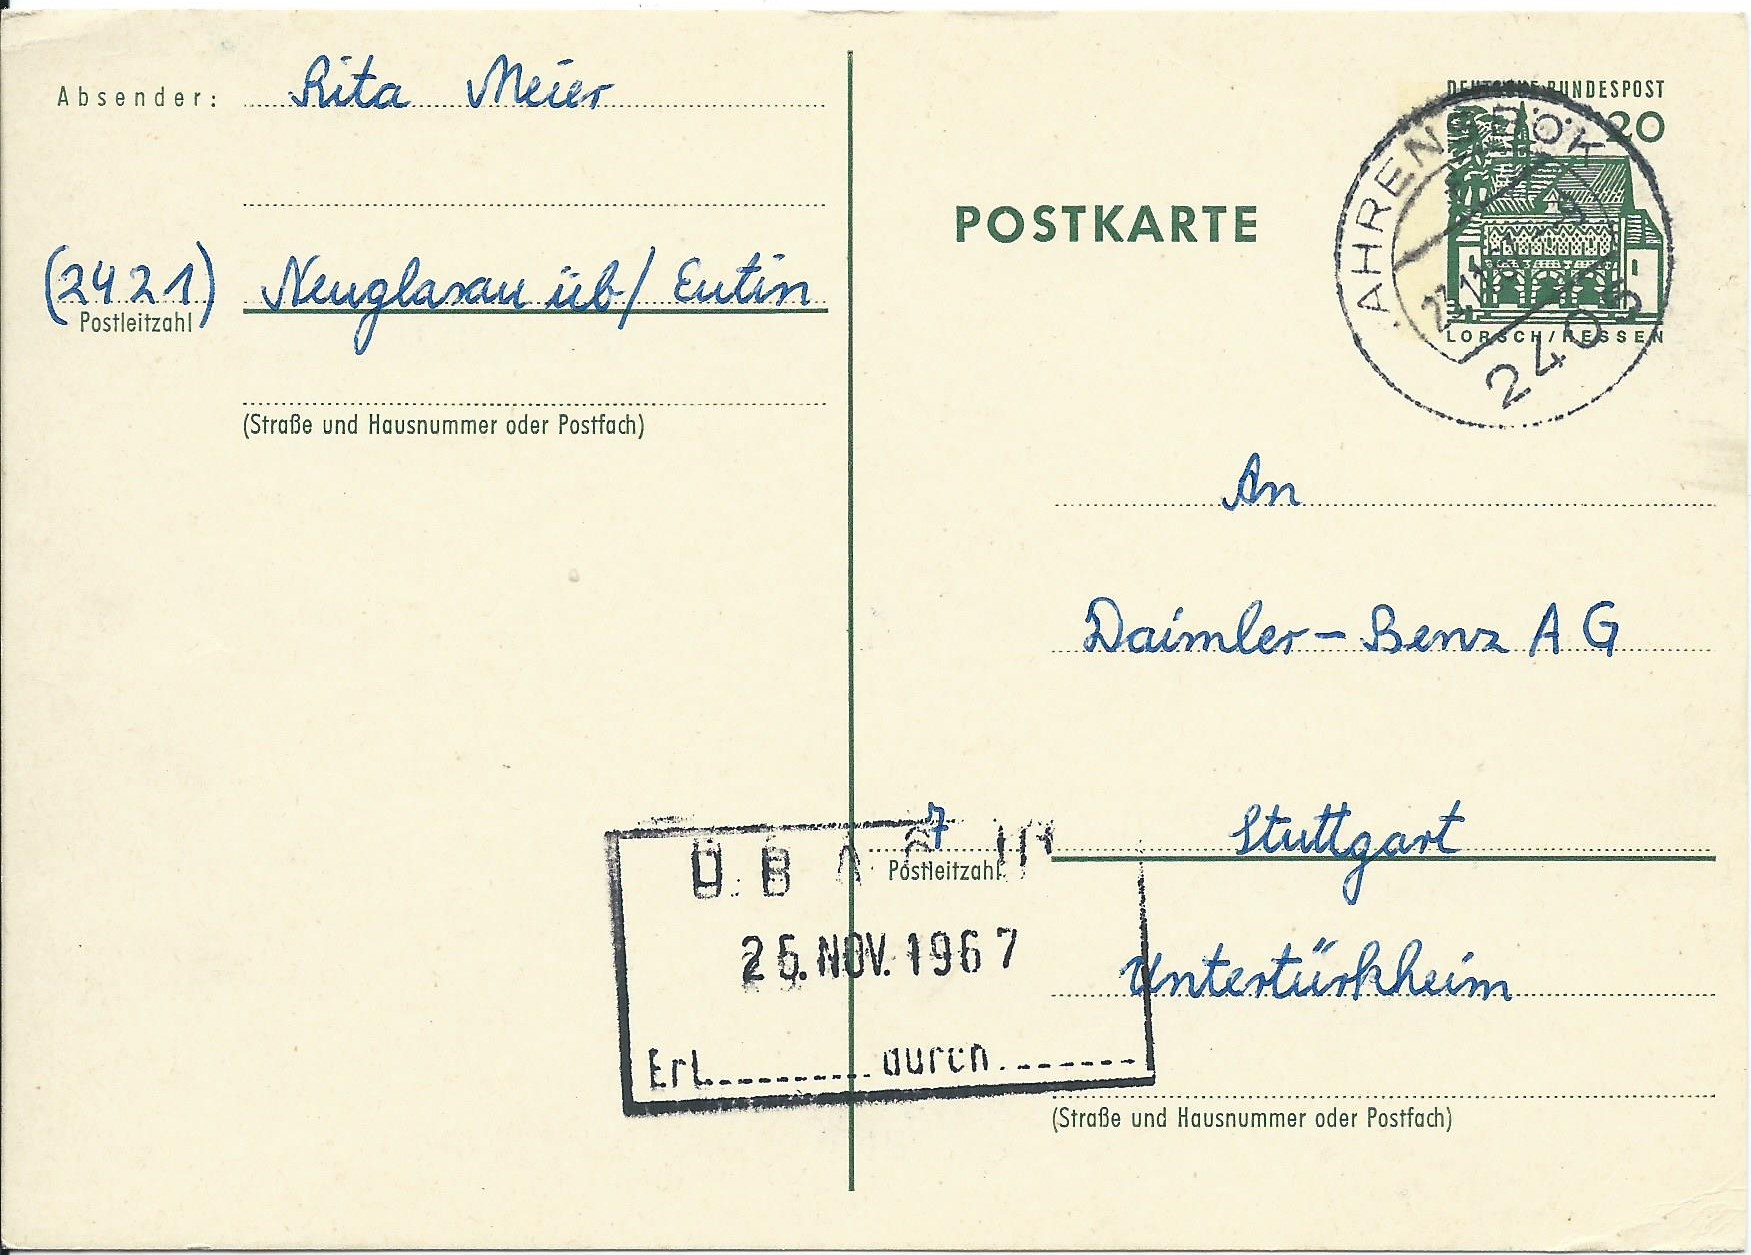 Absender: Rita Meier
(2421) Neuglasau üb/ Eutin
Postleitzahl
(Straße und Hausnummer oder Postfach)
POSTKARTE
DEUTSCHE BUNDESPOST
20
LORSCH/HESSEN
AHRENSBÖK
2405
An
Daimler-Benz AG
7 Stuttgart
Postleitzahl
Untertürkheim
(Straße und Hausnummer oder Postfach)
NOV. 1967
Erl. durch